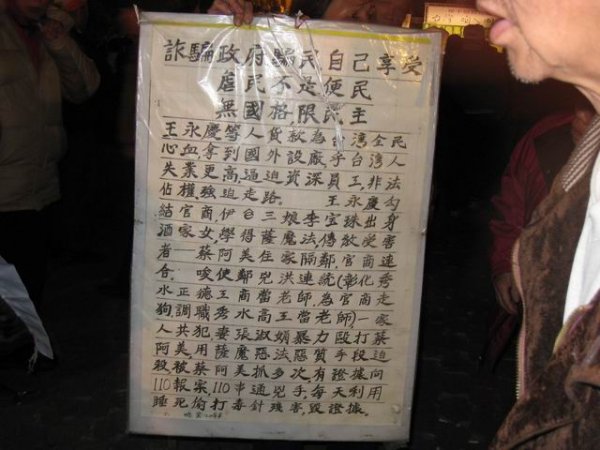 詐騙政府騙民自己享受
虐民不是便民
無國格,限民主
王永慶等人貨款為台灣全民
心血拿到國外設廠手台灣人
失業更高,逼迫資深員工,非法
佔權強迫走路. 王永慶勾
結官商伊の三娘李宝珠出身
酒家女,學得薩魔法,傳敎受害
者——蔡阿美住家隔鄰官商連
合. 唆使鄰兇洪連統(彰化秀
水正德工商當老師,為官商走
狗,調職秀水高工當老師)一家
人共犯妻張淑娟暴力毆打蔡
阿美,用薩魔惡法惡質手段迫
殺被蔡阿美抓多次,有證據向
110報案110串通兇手,每天利用
睡死偷打毒針殘害,毀證據.